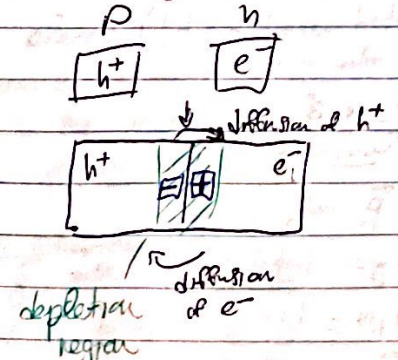 p n
h⁺ e⁻
diffusion of h⁺
h⁺ e⁻
− +
diffusion
of e⁻
depletion
region